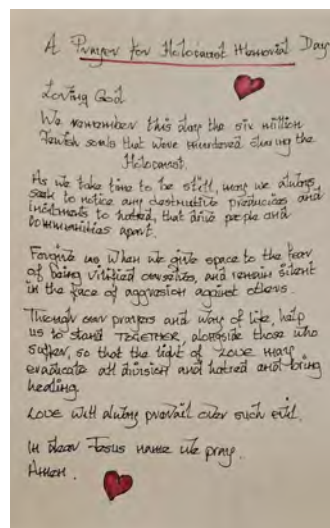 A Prayer for Holocaust Memorial Day
Loving God
We remember this day the six million
Jewish souls that were murdered during the
Holocaust.
As we take time to be still, may we always
seek to notice any destructive prejudices and
incitements to hatred, that drive people and
communities apart.
Forgive us when we give space to the fear
of being vilified ourselves, and remain silent
in the face of aggression against others.
Through our prayers and way of life, help
us to stand TOGETHER, alongside those who
suffer, so that the light of LOVE may
eradicate all division and hatred and bring
healing.
LOVE will always prevail over such evil.
In dear Jesus name we pray.
Amen.